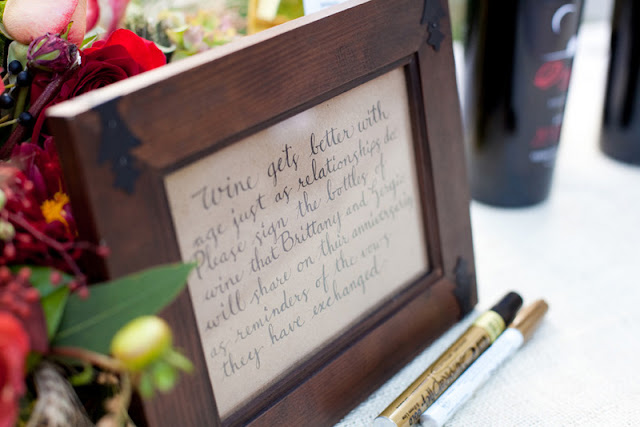 wine gets better with
age just as relationships do.
Please sign the bottles of
wine that Brittany and Sergio
will share on their anniversaries
as reminders of the vows
they have exchanged